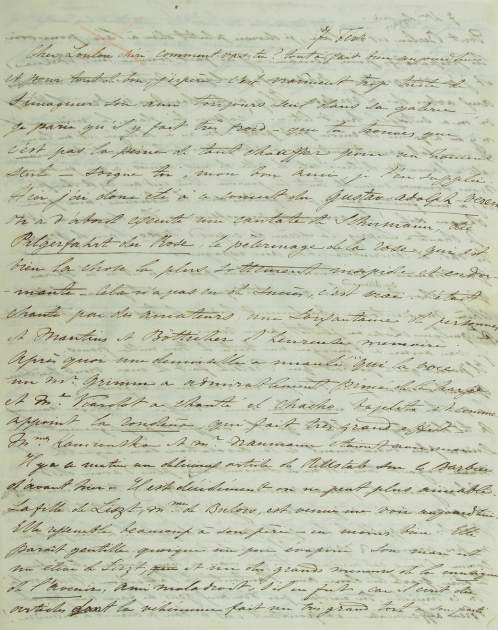 7 Feb
Cher Loulou chéri comment vas-tu? tout à fait bien aujourd'hui
et pour tout de bon j'espère. C'est vraiment trop triste de
s'imaginer son ami toujours seul dans sa galerie
je parie qu'il y fait très froid – que tu trouves que
c'est pas la peine de tant chauffer pour un homme
seul – soigne toi, mon bon ami, je t'en supplie
Hier j'ai donc été à ce concert du Gustav-Adolph Verein
on a d'abord exécuté une cantate de Schumann, der
Pilgerfahrt der Rose, le pèlerinage de la rose, qui est
bien la chose la plus sottement insipide et endor
mante – Cela n'a pas eu de succès, c'est vrai. C'était
chanté par des amateurs une soixantaine de personnes
et Mantius et Bötticher d'heureuse mémoire
Après quoi une demoiselle a miaulé "qui la voce
un Mr. Grimm a admirablement bien de la harpe
et Me. Viardot a chanté el chacho, Vagelita et comme
appoint la Rondeña qui fait très grand effet
Mme et Mr.
Il y a ce matin un délicieux article de Rellstab sur le Barbier
d'avant hier. Il est décidément on ne peut plus aimable
La fille de Liszt, Mme de Bulow, est venue me voir aujourd'hui
Elle ressemble beaucoup à son père, en moins beau. Elle
paraît gentille quoique un peu évaporée. Son mari est
un élève de Liszt, et un des grands meneurs de la musique
de l'avenir, ami maladroit s'il en fut, car il écrit des
articles dont la véhémence fait un très grand tort à son parti